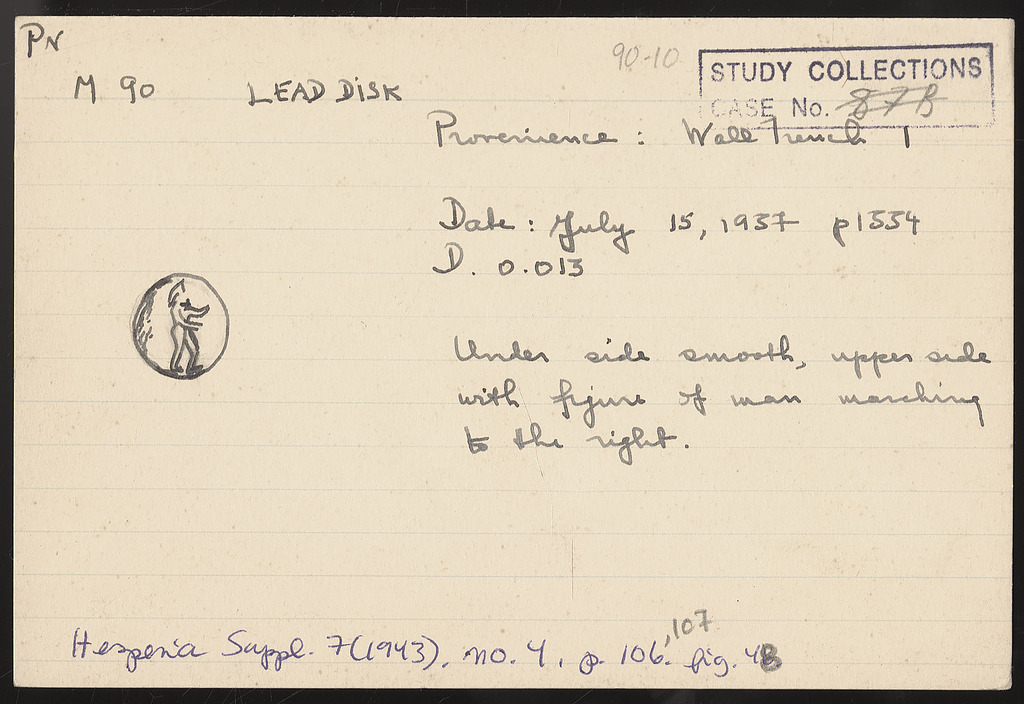 PN
90-10
STUDY COLLECTIONS
CASE No. 87B
M 90 LEAD DISK
Provenience : Wall Trench 1
Date : July 15, 1937 p1334
D. 0.013
Under side smooth, upper side
with figure of man marching
to the right.
Hesperia Suppl. 7(1943), no. 4, p. 106, 107 fig. 48